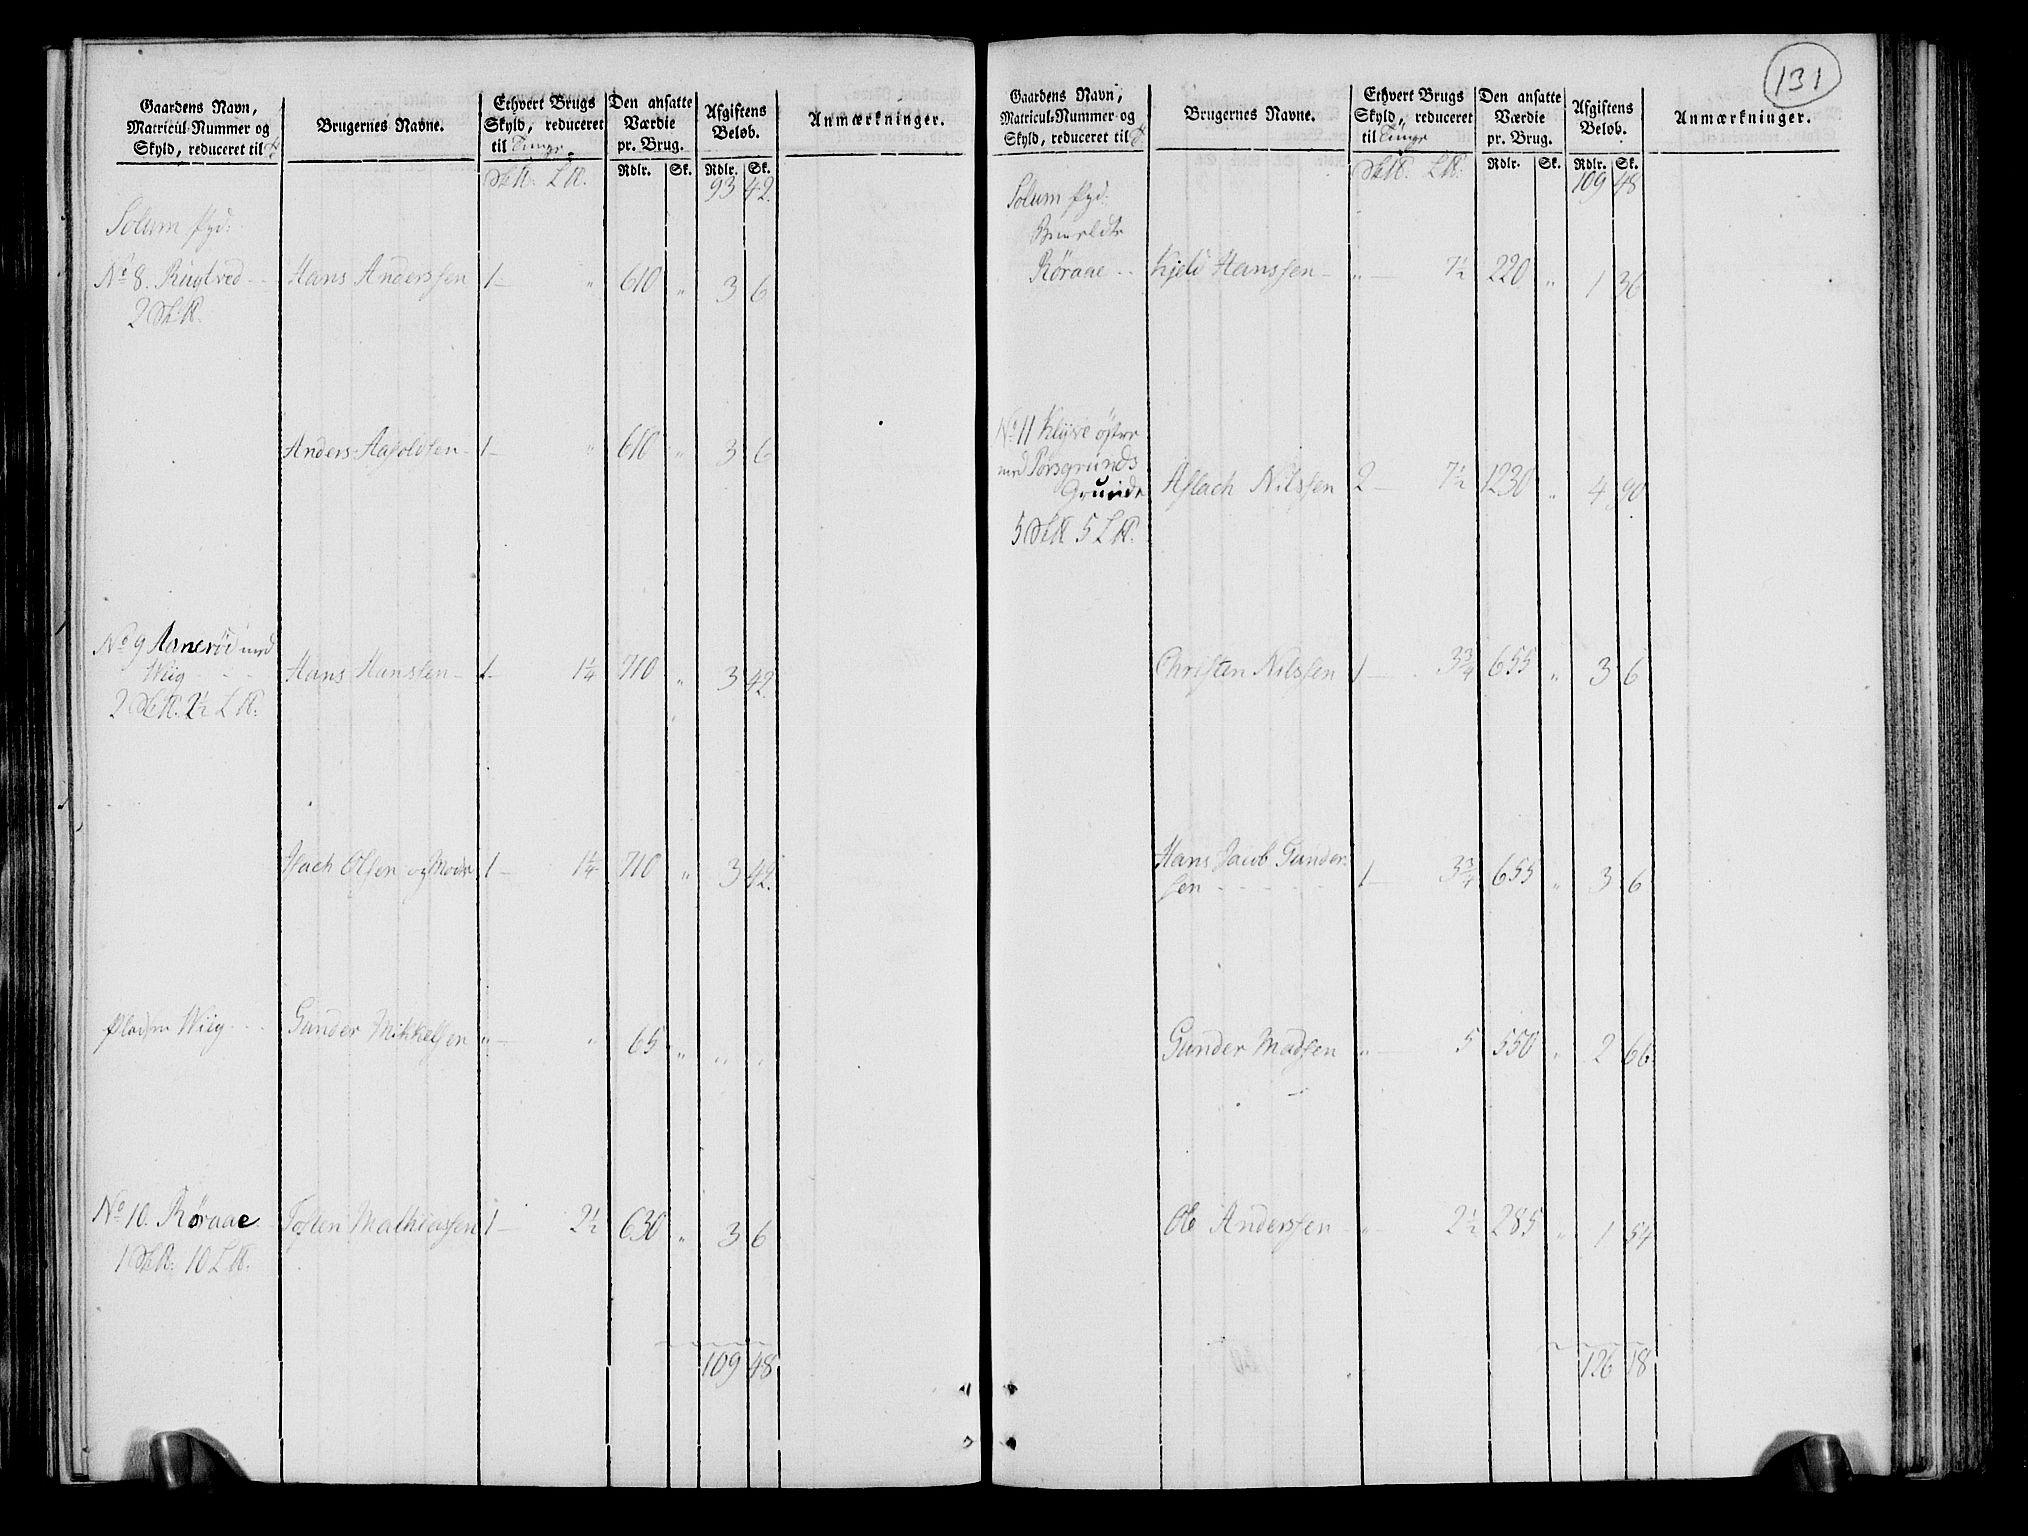 Gaardens Navn, Matricul-Nummer og Skyld, reduceret til
Brugernes Navne.
Ethvert Brugs Skyld, reduceret til Tunge
Den ansatte Værdie pr. Brug.
Afgiftens Beløb.
Anmærkninger.
Rdlr. Sk. Rdlr. Sk.
93 42
Solum
No 8. Rugtved Hans Anderssen 1 — " 610 " 3 6
2
Anders 1 — " 610 " 3 6
No 9 Aanerød med
Wiig Hans Hanssen 1 — 1¼ 710 " 3 42
2 2½
Olsen og Moder 1 — 1¼ 710 " 3 42
Pladsen Wiig Gunder Mikkelsen " — " 65 " " "
No 10. Røraae Tosten Mathiassen 1 — 2½ 630 " 3 6
1 10
109 48
131
Gaardens Navn, Matricul-Nummer og Skyld, reduceret til
Brugernes Navne.
Ethvert Brugs Skyld, reduceret til Tunge
Den ansatte Værdie pr. Brug.
Afgiftens Beløb.
Anmærkninger.
Rdlr. Sk. Rdlr. Sk.
109 48
Solum
Røraae Hanssen " — 7½ 220 " 1 36
No 11 Klyve østre
med Porsgrunds
Grunde Aslach Nilssen 2 — 7½ 1230 " 4 90
5 5
Christen Nilssen 1 — 3¾ 655 " 3 6
Hans Jacob Gunder
sen 1 — 3¾ 655 " 3 6
Gunder Madsen " — 5 550 " 2 66
Ole Anderssen " 2½ 285 " 1 54
126 18